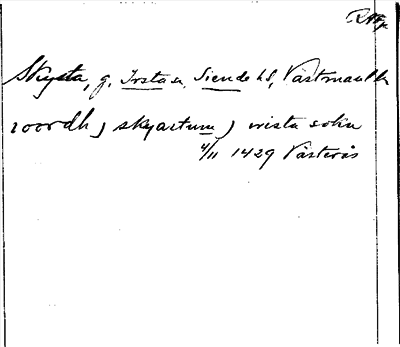 RAp.
Skysta, g. Irsta sn, Siende hd, Västmanl. l.
i oordh j skyastum j irista sokn
4/11 1429 Västerås